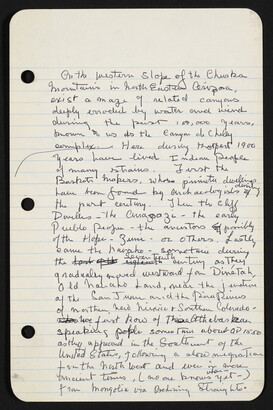 On the western slope of the Chuska
Mountains in North Eastern Arizona,
exist a maze of related canyons
deeply eroded by water and wind
during the past 100,000 years,
known to us as the Canyon de Chelly
complex. Here during the past 1900
years have lived Indian people
of many strains. First the
Basket Makers, whose primitive dwellings
have been found by archaeologists during
the past century. Then the Cliff
Dwellers - the Anasazi - the early
Pueblo People - the ancestors of possibly
of the Hopi - Zuni - or others, Lastly
came the Navaho - sometime during
the seventeenth century as they
gradually moved westward from Dinetah,
Old Navaho Land, near the junction
of the San Juan and the Pine Rivers
of northern New Mexico & Southern Colorado.
first know of these Athabaskan
speaking people sometime about AD 1500
as they appeared in the Southwest of the
United States, following a slow migration
from the North West and even in more
ancient times, (no one knows yet -
From Mongolia via Behring Straights.